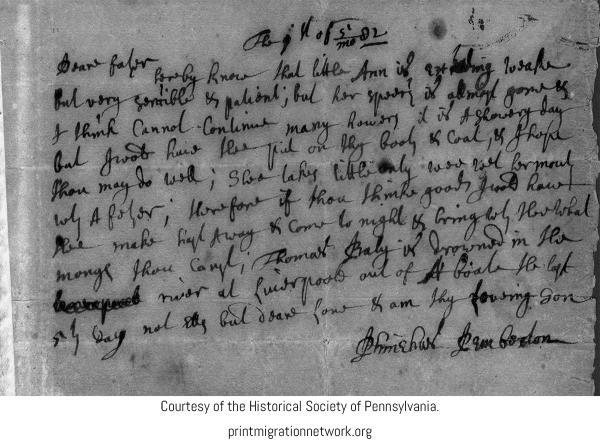 The 9th of 5th mo 82
Deare father
hereby know that little Ann is exceeding weake
but very sensible & patient; but her speech is almost gone &
I think Cannot Continue many howers it is A showery day
but I wod have thee put on thy boots & Coat, & I hope
thou may do well; Shee takes little only wee wet her mouth
wth A fether; therefore if thou thinke good I wod have
thee make hast Away & Come to night & bring wth thee what
monys thou Canst; Thomas is drowned in the
river at Liverpoole out of A boate the last
5th day not but deare Love & am thy Loveing Son
Phinehas Pemberton
Courtesy of the Historical Society of Pennsylvania.
printmigrationnetwork.org